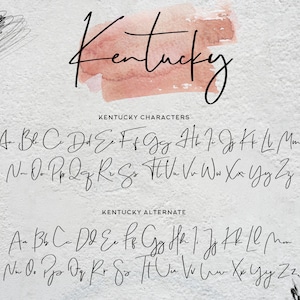 Kentucky
KENTUCKY CHARACTERS
Aa Bb Cc Dd Ee Ff Gg Hh Ii Jj Kk Ll Mm
Nn Oo Pp Qq Rr Ss Tt Uu Vv Ww Xx Yy Zz
KENTUCKY ALTERNATE
Aa Bb Cc Dd Ee Ff Gg Hh Ii Jj Kk Ll Mm
Nn Oo Pp Qq Rr Ss Tt Uu Vv Ww Xx Yy Zz